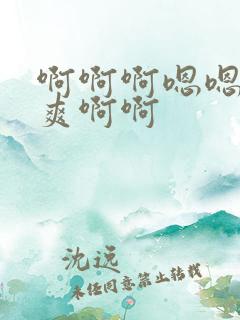 啊啊啊嗯嗯
爽啊啊
沈远
未经同意禁止转载